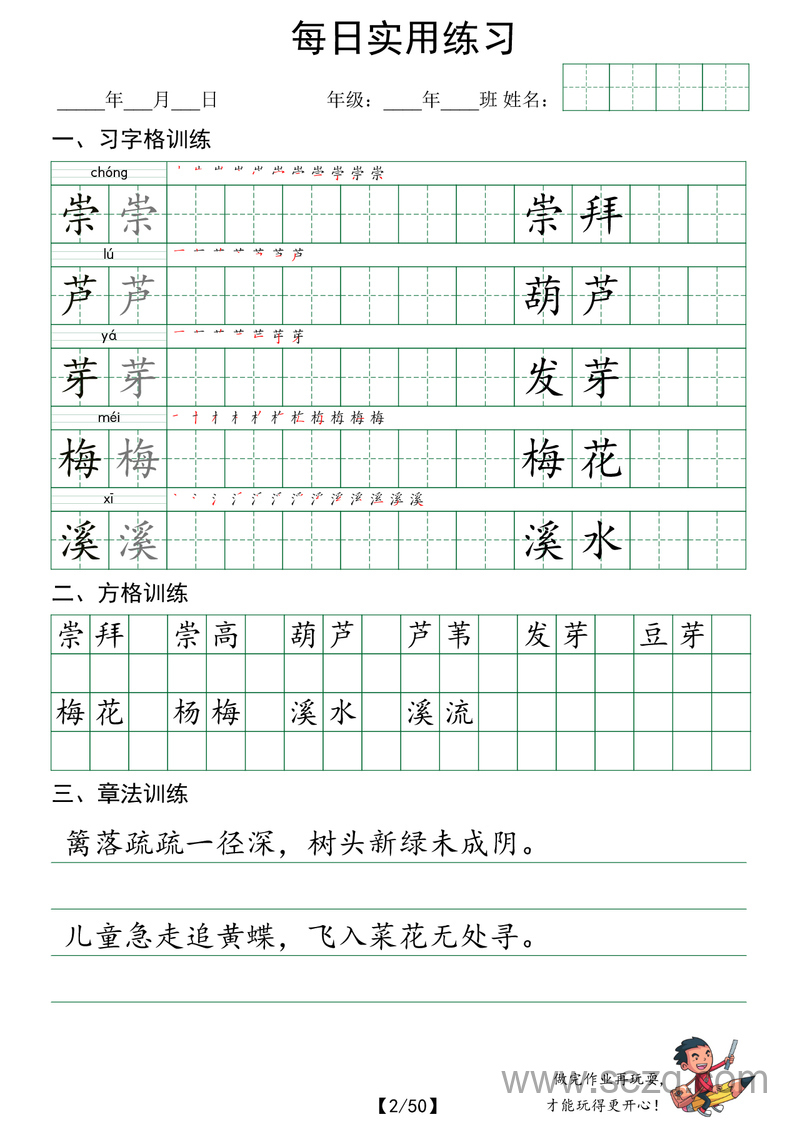 每日实用练习
_____年___月___日 年级：____年____班 姓名：
一、习字格训练
chóng
崇 崇 崇 拜
lú
芦 芦 葫 芦
yá
芽 芽 发 芽
méi
梅 梅 梅 花
xī
溪 溪 溪 水
二、方格训练
崇拜 崇高 葫芦 芦苇 发芽 豆芽
梅花 杨梅 溪水 溪流
三、章法训练
篱落疏疏一径深，树头新绿未成阴。
儿童急走追黄蝶，飞入菜花无处寻。
做完作业再玩耍，
才能玩得更开心！
【2/50】